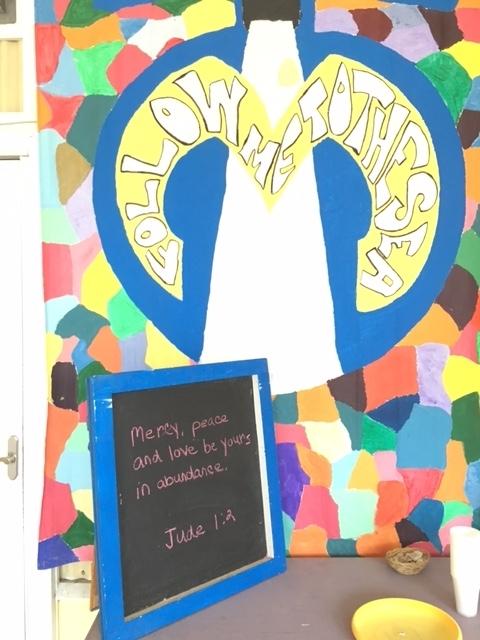 FOLLOW ME TO THE SEA
Mercy, peace
and love be yours
in abundance.
Jude 1:2